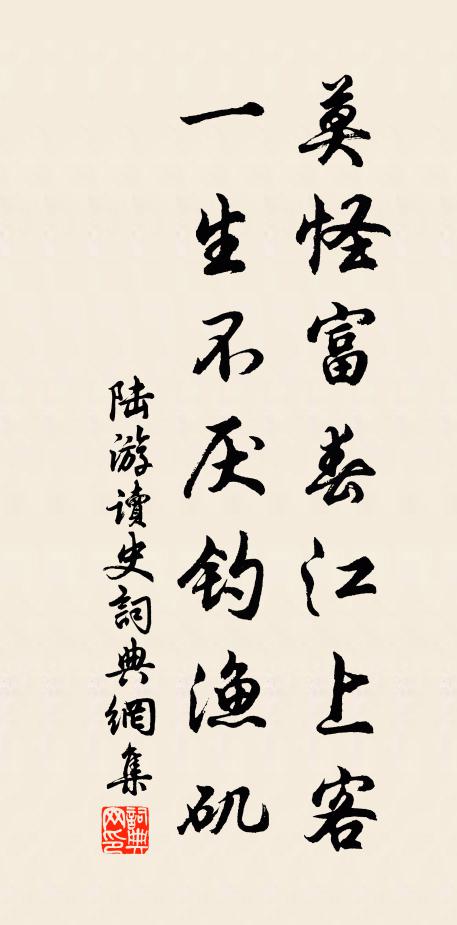 莫怪富春江上客
一生不厌钓漁矶
陆游讀史詞典網集
詞典网印